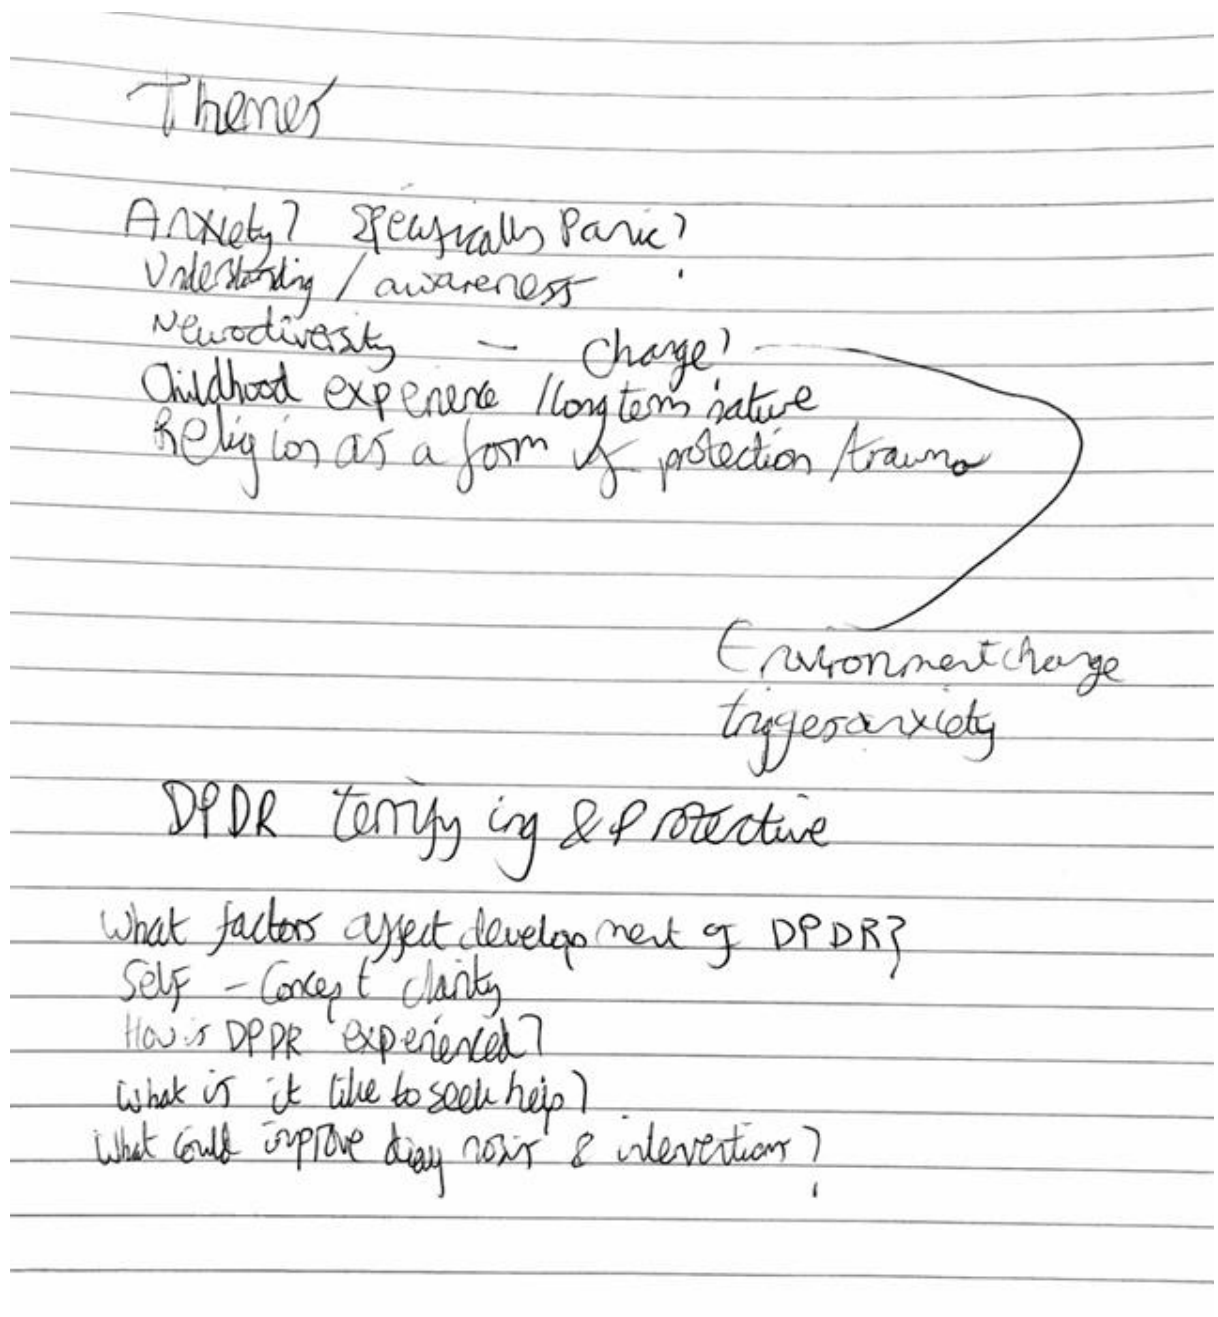 Themes
Anxiety? Specifically Panic?
Understanding / awareness
Neurodiversity - change?
Childhood experience / long term nature
Religion as a form of protection / trauma
Environment change
triggers anxiety
DPDR terrifying & protective
What factors affect development of DPDR?
Self-Concept clarity
How is DPDR experienced?
What is it like to seek help?
What could improve diagnosis & interventions?